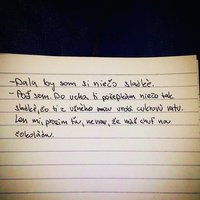 - Dala by som si niečo sladké.
- Poď sem. Do ucha ti pošepkám niečo tak
sladké, čo ti z ušného mazu urobí cukrovú vatu.
Len mi, prosím ťa, nevrav, že máš chuť na
čokoládu.